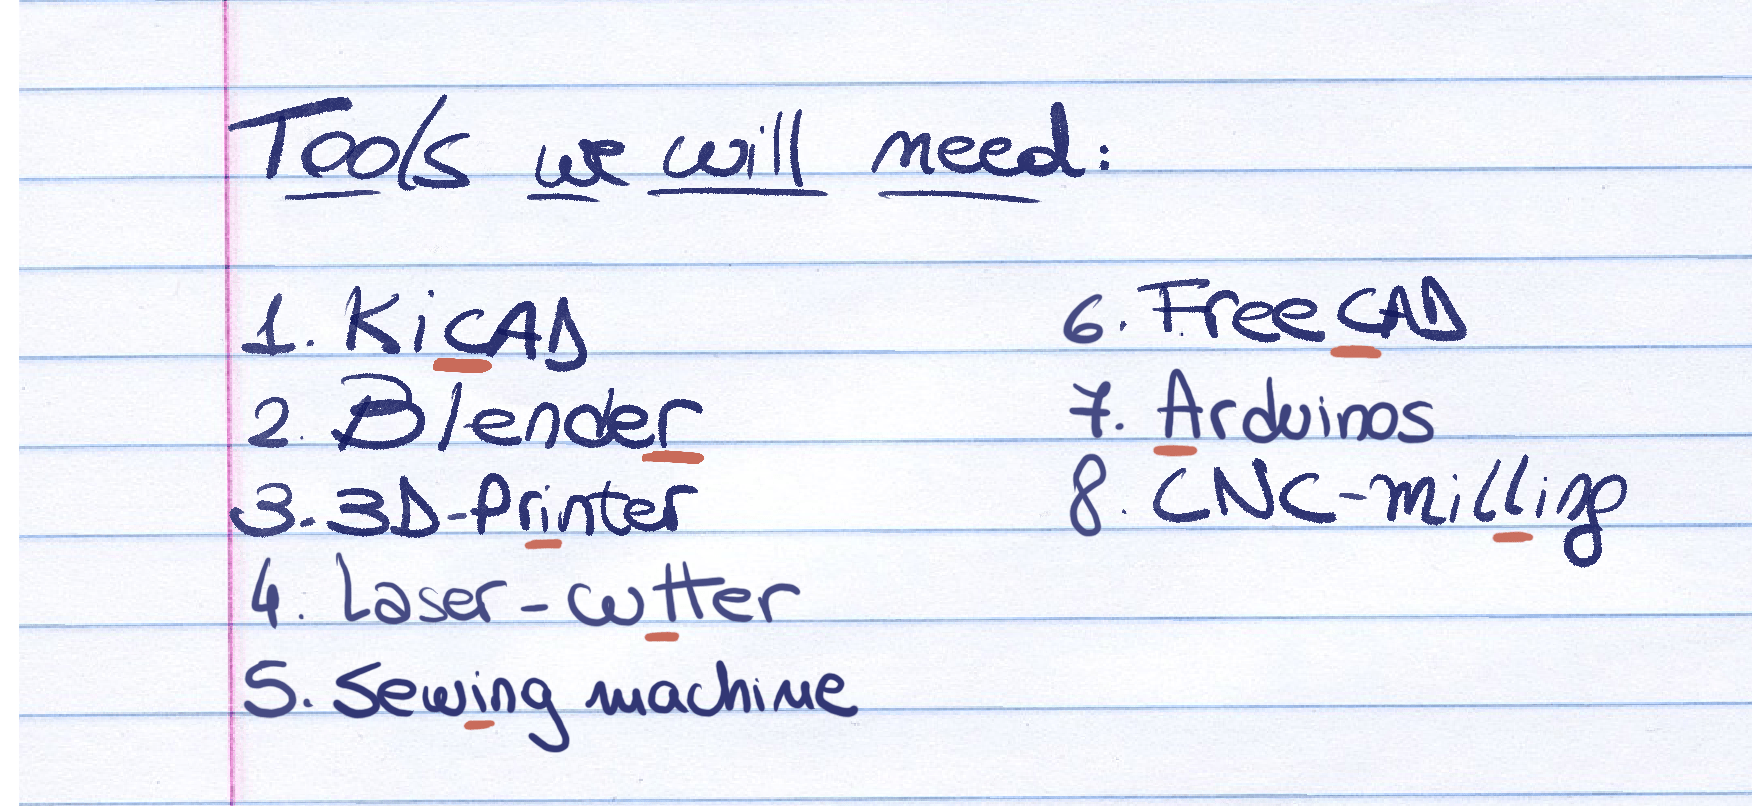 Tools we will need:
1. KiCAD
2. Blender
3. 3D-Printer
4. Laser-cutter
5. Sewing machine
6. FreeCAD
7. Arduinos
8. CNC-milling